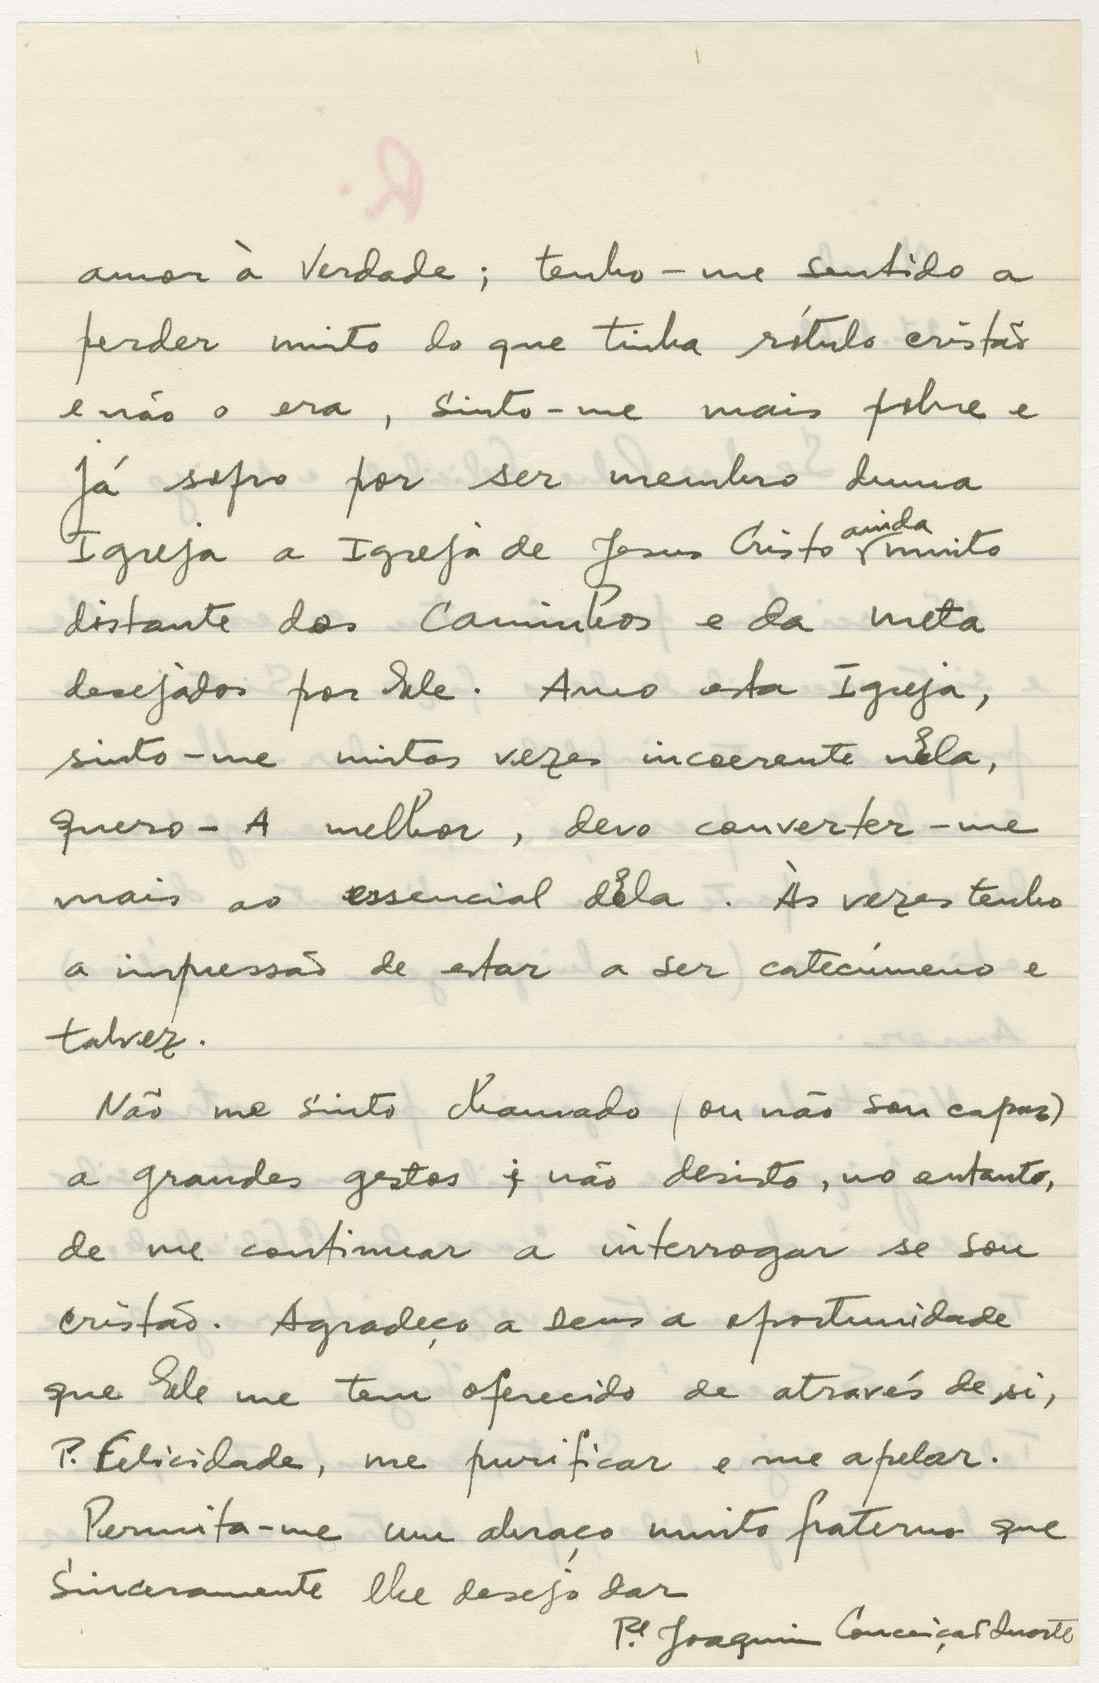 R.
amor à Verdade; tenho-me sentido a
perder muito do que tinha rótulo cristão
e não o era, sinto-me mais pobre e
já sofro por ser membro duma
Igreja a Igreja de Jesus Cristo ainda muito
distante dos Caminhos e da meta
desejados por Ele. Amo esta Igreja,
sinto-me muitas vezes incoerente nEla,
quero-A melhor, devo converter-me
mais ao essencial dEla. Às vezes tenho
a impressão de estar a ser catecúmeno e
talvez.
Não me sinto chamado (ou não sou capaz)
a grandes gestos; não desisto, no entanto,
de me continuar a interrogar se sou
cristão. Agradeço a Deus a oportunidade
que Ele me tem oferecido de através de si,
P. Felicidade, me purificar e me apelar.
Permita-me um abraço muito fraterno que
sinceramente lhe desejo dar
P.e Joaquim Conceição Duarte